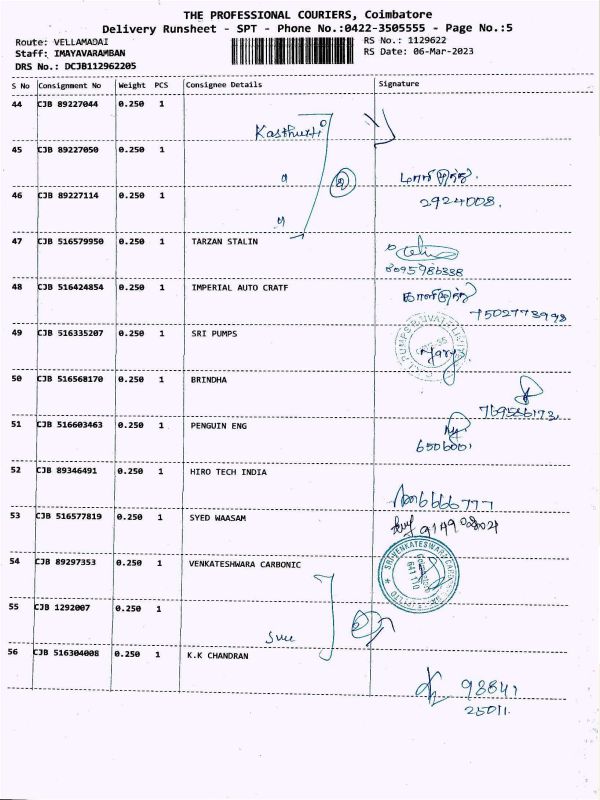 THE PROFESSIONAL COURIERS, Coimbatore
Delivery Runsheet - SPT - Phone No.:0422-3505555 - Page No.:5
Route: VELLAMADAI
RS No.: 1129622
Staff: IMAYAVARAMBAN
RS Date: 06-Mar-2023
DRS No.: DCJB112962205
S No Consignment No Weight PCS Consignee Details Signature
44 CJB 89227044 0.250 1
Kasthuri
45 CJB 89227050 0.250 1
46 CJB 89227114 0.250 1
2924008.
47 CJB 516579950 0.250 1 TARZAN STALIN
8095986338
48 CJB 516424854 0.250 1 IMPERIAL AUTO CRATF
7502773998
49 CJB 516335207 0.250 1 SRI PUMPS
50 CJB 516568170 0.250 1 BRINDHA
51 CJB 516603463 0.250 1 PENGUIN ENG
52 CJB 89346491 0.250 1 HIRO TECH INDIA
53 CJB 516577819 0.250 1 SYED WAASAM
54 CJB 89297353 0.250 1 VENKATESHWARA CARBONIC
641 110
55 CJB 1292007 0.250 1
56 CJB 516304008 0.250 1 K.K CHANDRAN
98841
25011.